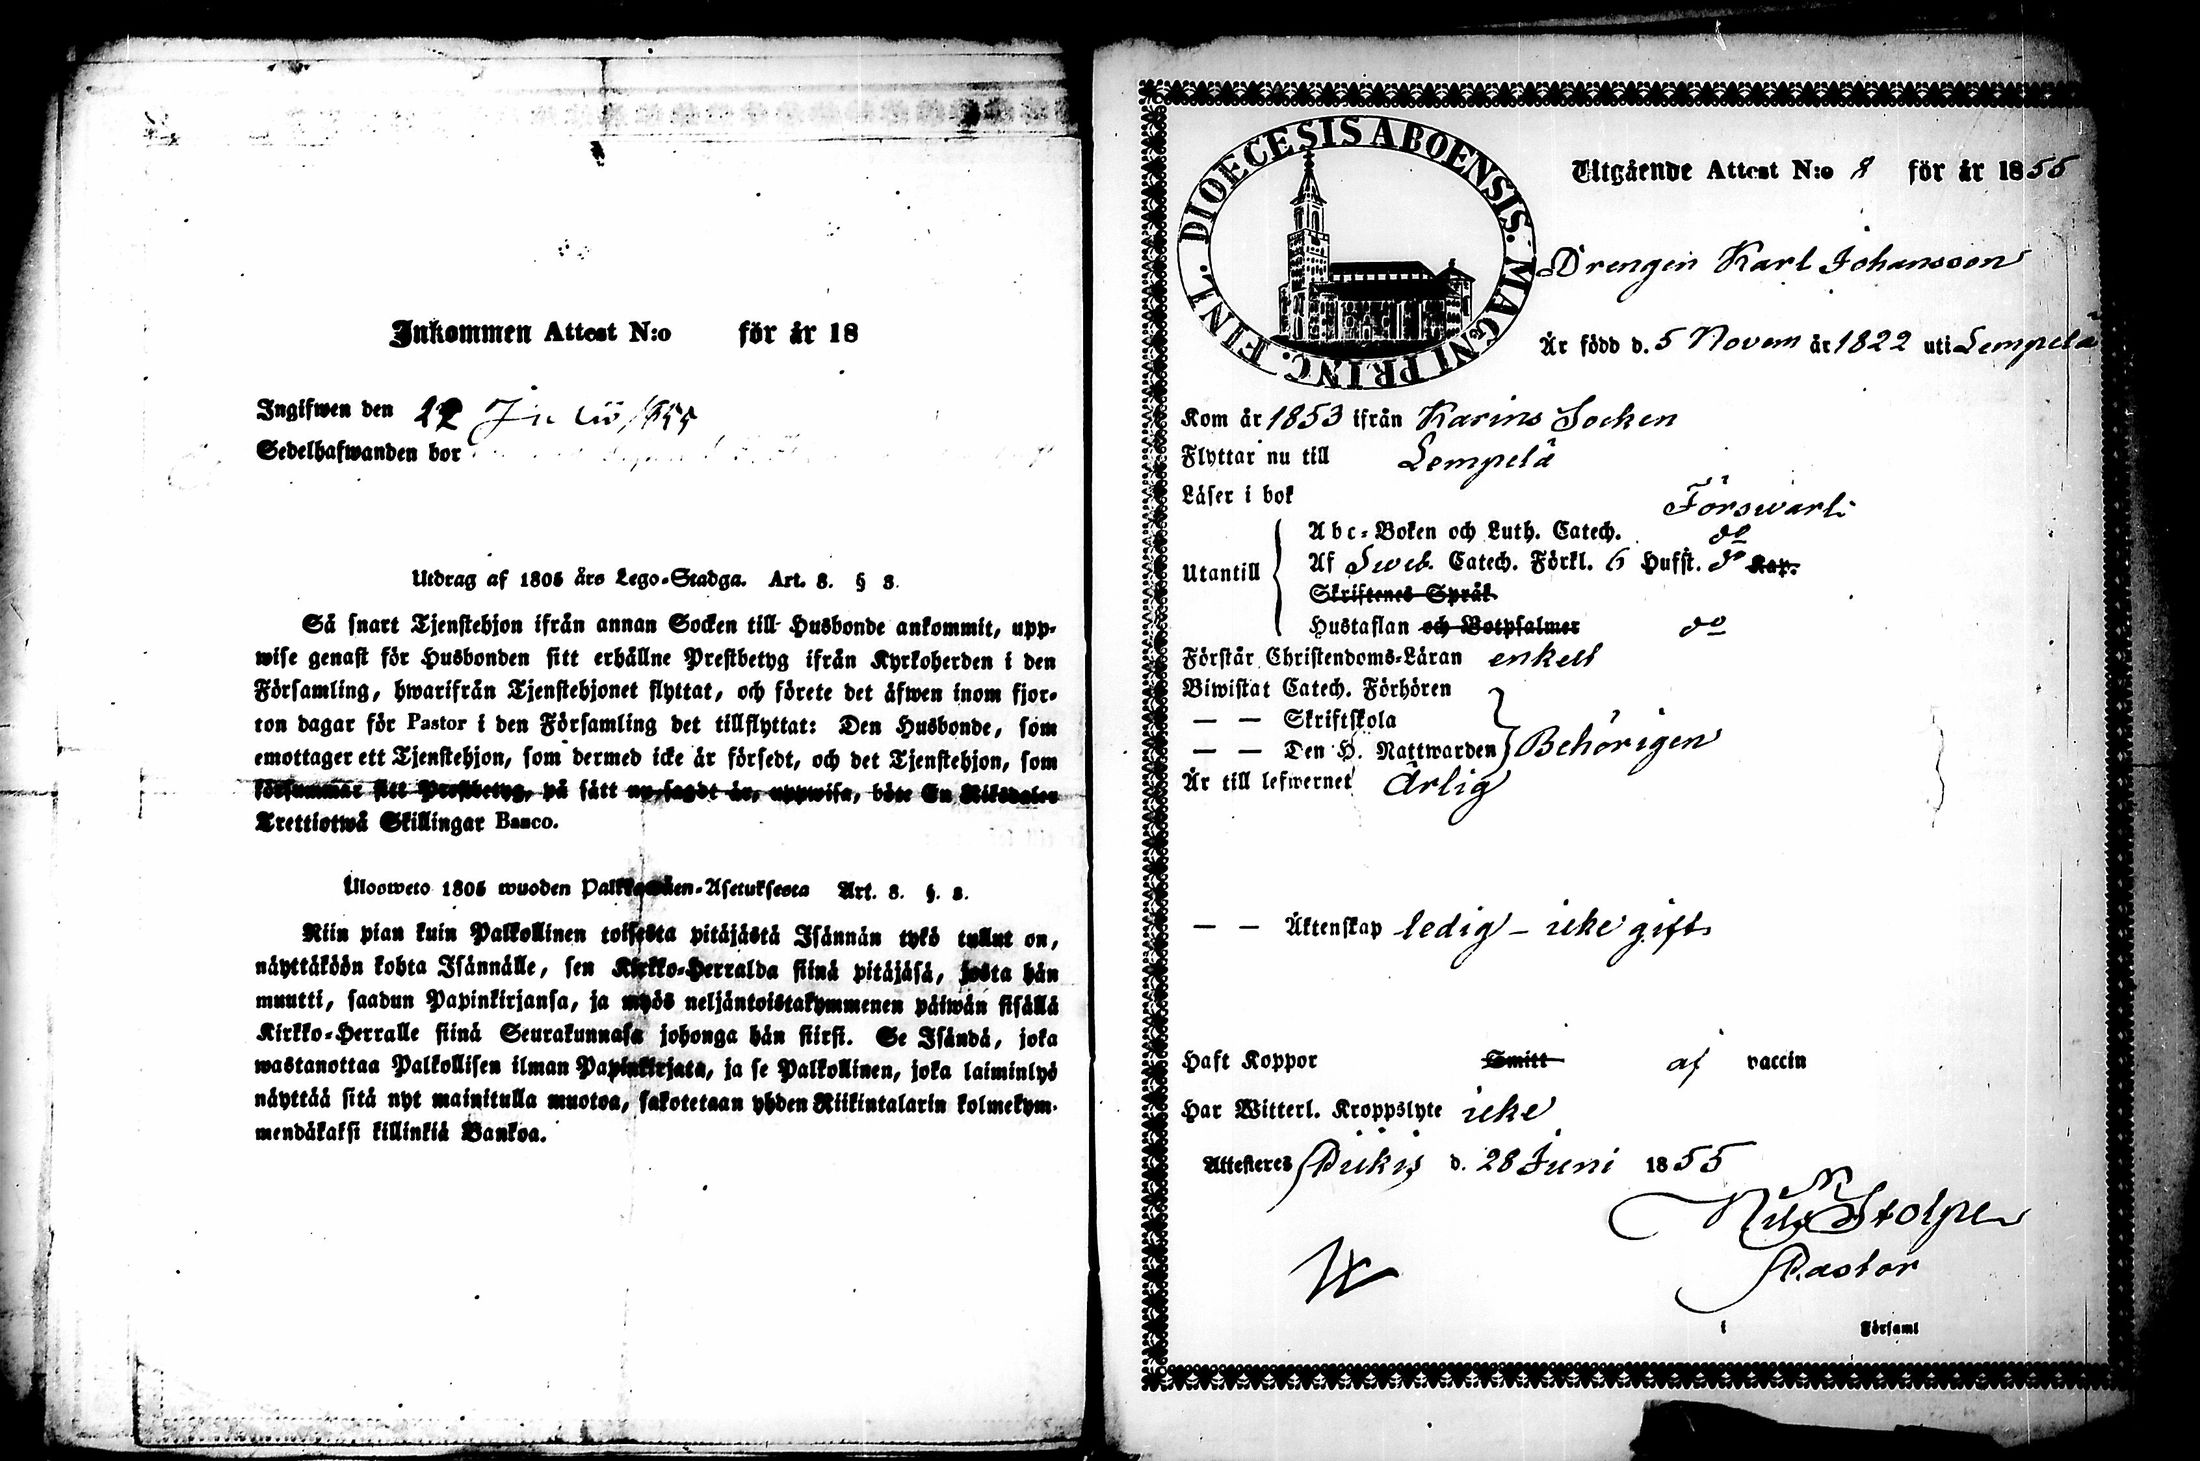 Inkommen Attest N:o för år 18
Ingifwen den 22 1855
Sedelhafwanden bor
Utdrag af 1805 års Lego-Stadga. Art. 8. § 3.
Så snart Tjenstehjon ifrån annan Socken till Husbonde ankommit, upp-
wise genast för Husbonden sitt erhållne Prestbetyg ifrån Kyrkoherden i den
Församling, hwarifrån Tjenstehjonet flyttat, och förete det äfwen inom fjor-
ton dagar för Pastor i den Församling det tillflyttat: Den Husbonde, som
emottager ett Tjenstehjon, som dermed icke är försedt, och det Tjenstehjon, som
försummar sitt Prestbetyg, på sätt nu sagdt är, uppwisa, böte En Riksdaler
Trettiotwå Skillingar Banco.
Ulosweto 1805 wuoden Palkkawäen-Asetuksesta Art. 8. §. 3.
Niin pian kuin Palkollinen toisesta pitäjästä Isännän tykö tullut on,
näyttäköön kohta Isännälle, sen Kirkko-Herralda siinä pitäjäsä, josta hän
muutti, saadun Papinkirjansa, ja myös neljäntoistakymmenen päiwän sisällä
Kirkko-Herralle siinä Seurakunnasa johonga hän siirsi. Se Isändä, joka
wastanottaa Palkollisen ilman Papinkirjata, ja se Palkollinen, joka laiminlyö
näyttää sitä nyt mainitulla muotoa, sakotetaan yhden Riikintalarin kolmekym-
mendäkaksi killinkiä Bankoa.
DIOECESIS ABOENSIS. MAGNI PRINC. FINL.
Utgående Attest N:o 8 för år 1855
Drengen Karl Johansson
Är född d. 5 Novem år 1822 uti Lempelä
Kom år 1853 ifrån Karins Socken
Flyttar nu till Lempelä
Läser i bok Förswarl:
Utantill
Abc-Boken och Luth. Catech. do
Af Sweb. Catech. Förkl. 6 Hufst. do Kap.
Skriftenes Språk
Hustaflan och Botpsalmer do
Förstår Christendoms-Läran enkelt
Biwistat Catech. Förhören
— — Skriftskola
— — Den H. Nattwarden Behörigen
Är till lefwernet Ärlig
— — Äktenskap ledig – icke gift
Haft Koppor Smitt af vaccin
Har Witterl. Kroppslyte icke
Attesteres Piikis d. 28 Juni 1855
Nils Stolpe
Pastor
i Församl